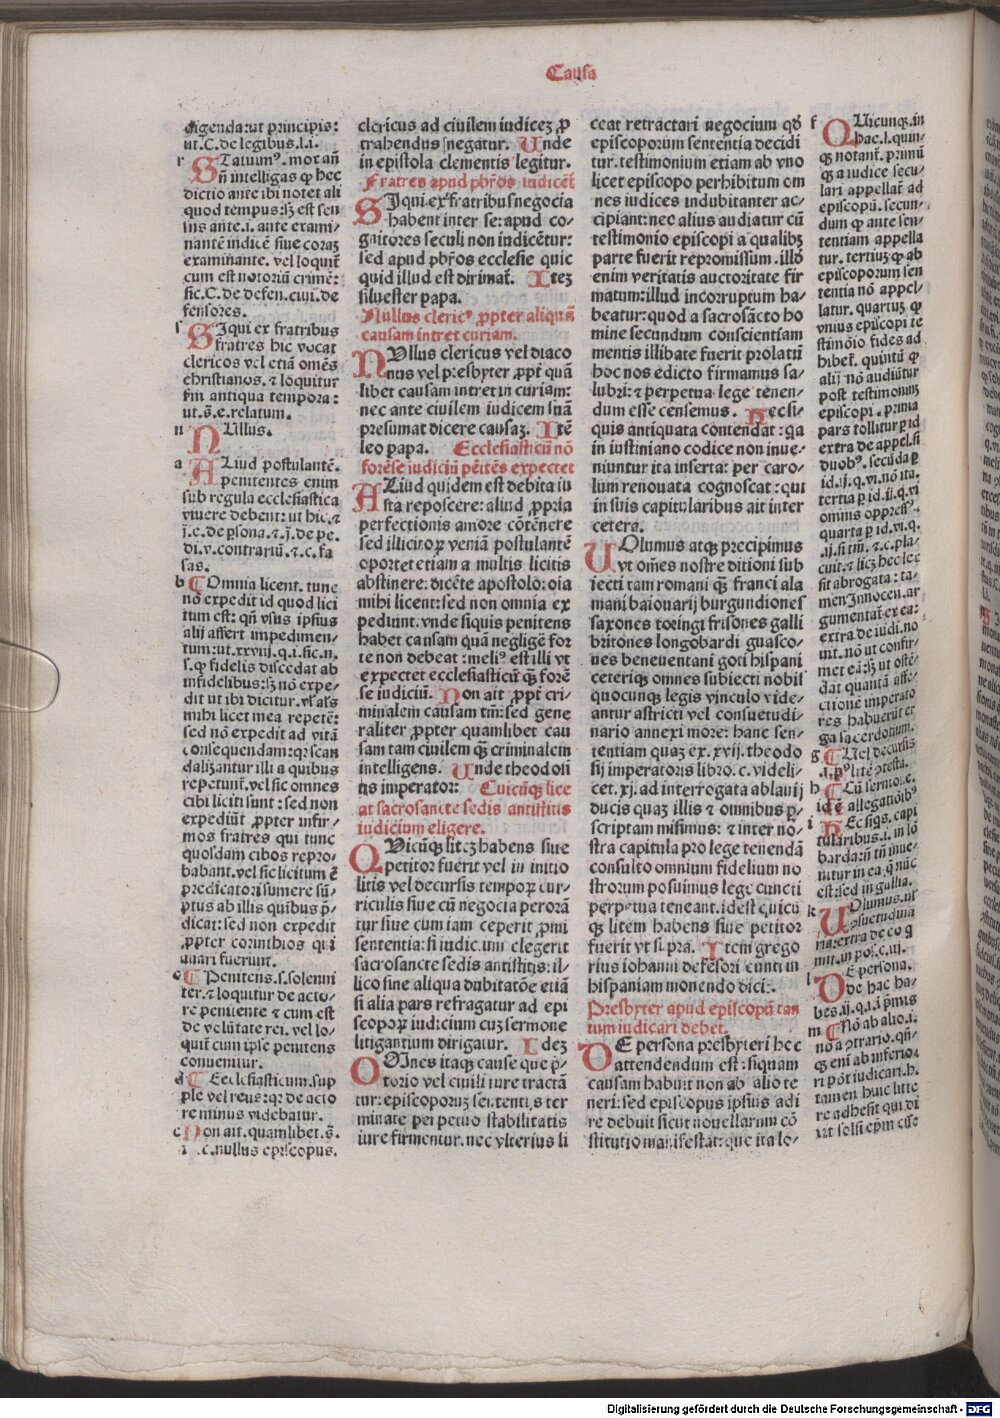 Causa
digenda: ut principis:
ut. C. de legibus. l. i.
r STatuimꝰ. mox añ
ñ intelligas ꝙ hec
dictio ante ibi notet ali
quod tempus: sꝫ est sen
sus ante. i. ante exami⸗
nantē iudicē siue coraꝫ
examinante. vel loquit̄
cum est notoriū crimē:
sic. C. de defen. ciui. de
fensores.
s SIqui ex fratribus
fratres hic vocat
clericos vel etiā omēs
christianos. ⁊ loquitur
s̄m antiqua tempora:
ut. s̄. e. relatum.
NUllus.
a ALiud postulantē.
penitentes enim
sub regula ecclesiastica
viuere debent: ut hic. ⁊
j. e. de ꝑsona. ⁊. j. de pe.
di. v. contrariū. ⁊. c. fa
sas.
b ¶ Omnia licent. tunc
nō expedit id quod lici
tum est: qñ vsus ipsius
alij affert impedimen⸗
tum: ut. xxviij. q. i. sic. n.
s. ꝙ fidelis discedat ab
infidelibus: sꝫ nō expe⸗
dit ut ibi dicitur. vl̓ al̓s
mihi licet mea repetē:
sed nō expedit ad vitā
cōsequendam: qꝛ scan
dalizantur illi a quibus
repetunt̄. vel sic omnes
cibi liciti sunt: sed non
expediūt ꝓpter infir⸗
mos fratres qui tunc
quosdam cibos repro⸗
babant. vel sic licitum ē
p̄dicatori sumere sū⸗
ptus ab illis quibus p̄⸗
dicat: sed non expedit
ꝓpter corinthios qui
auari fuerunt.
c ¶ Penitens. s. solenni
ter. ⁊ loquitur de acto⸗
re penitente ⁊ cum est
de velūtate rei. vel lo⸗
quit̄ cum ipse penitens
conuenitur.
d ¶ Ecclesiasticum. sup
ple vel reus: qꝛ de acto
re minus videbatur.
e Non ait. quamlibet. s̄.
i. c. nullus episcopus.
clericus ad ciuilem iudiceꝫ ꝓ
trahendus negatur. Unde
in epistola clementis legitur.
Fratres apud p̄br̄os iudicēt̄
SIqui ex fratribus negocia
habent inter se: apud co⸗
gnitores seculi non iudicētur:
sed apud p̄br̄os ecclesie quic
quid illud est dirimat̄. Iteꝫ
siluester papa.
Nullus clericꝰ ꝓpter aliquā
causam intret curiam.
NUllus clericus vel diaco
nus vel presbyter ꝓpt̄ quā
libet causam intret in curiam:
nec ante ciuilem iudicem suā
presumat dicere causaꝫ. Itē
leo papa. Ecclesiasticū nō
forēse iudiciū pēitēs expectet
ALiud quidem est debita iu
sta reposcere: aliud ꝓpria
perfectionis amore cōtēnere
sed illicitoꝝ veniā postulantē
oportet etiam a multis licitis
abstinere: dicēte apostolo: oīa
mihi licent: sed non omnia ex
pediunt. vnde siquis penitens
habet causam quā negligē for
te non debeat: meliꝰ est illi vt
expectet ecclesiasticū qꝫ forē⸗
se iudiciū. Non ait ꝓpt̄ cri⸗
minalem causam tm̄: sed gene
raliter ꝓpter quamlibet cau
sam tam ciuilem qꝫ criminalem
intelligens. Unde theodosi
us imperator: Cuicūqꝫ lice
at sacrosancte sedis antistitis
iudicium eligere.
QUicūqꝫ liteꝫ habens siue
petitor fuerit vel in initio
litis vel decursis tempoꝝ cur⸗
riculis siue cū negocia perorā
tur siue cum iam ceperit ꝓmi
sententia: si iudicium elegerit
sacrosancte sedis antistitis: il⸗
lico sine aliqua dubitatōe etiā
si alia pars refragatur ad epi
scopoꝝ iudicium cuꝫ sermone
litigantium dirigatur. Ideꝫ
OMnes itaqꝫ cause que p̄⸗
torio vel ciuili iure tractā
tur: episcoporuꝫ sententijs ter
minate perpetuo stabilitatis
iure firmentur. nec vlterius li
ceat retractari negocium qd̓
episcoporum sententia decidi
tur. testimonium etiam ab vno
licet episcopo perhibitum om
nes iudices indubitanter ac⸗
cipiant: nec alius audiatur cū
testimonio episcopi a qualibꝫ
parte fuerit repromissum. illd̓
enim veritatis auctoritate fir
matum: illud incorruptum ha⸗
beatur: quod a sacrosācto ho
mine secundum conscientiam
mentis illibate fuerit prolatū
hoc nos edicto firmamus sa⸗
lubri: ⁊ perpetua lege tenen⸗
dum esse censemus. Nec si⸗
quis antiquata contendat: qꝛ
in iustiniano codice non inue⸗
niuntur ita inserta: per caro⸗
lum renouata cognoscat: qui
in suis capitularibus ait inter
cetera.
UOlumus atqꝫ precipimus
vt om̄es nostre ditioni sub
iecti tam romani qꝫ franci ala
mani baiouarij burgundiones
saxones toringi frisones galli
britones longobardi guasco⸗
nes beneuentani goti hispani
ceteriqꝫ omnes subiecti nobis
quocunqꝫ legis vinculo vide⸗
antur astricti vel consuetudi⸗
nario annexi more: hanc sen⸗
tentiam quaꝫ ex. xvij. theodo
sij imperatoris libro. c. videli⸗
cet. xj. ad interrogata ablauij
ducis quaꝫ illis ⁊ omnibus p̄⸗
scriptam misimus: ⁊ inter no⸗
stra capitula pro lege tenendā
consulto omnium fidelium no
strorum posuimus lege cuncti
perpetua teneant. id est quicū
qꝫ litem habens siue petitor
fuerit vt sꝫpra. Item grego
rius iohanni defēsori eunti in
hispaniam monendo dicit.
Presbyter apud episcopū tan
tum iudicari debet.
DE persona presbyteri hec
attendendum est: siquam
causam habuit non ab alio te
neri: sed episcopus ipsius adi
re debuit sicut nouellarum cō
stitutio manifestat: que ita lo⸗
f QUicunqꝫ. in
hac. l. quin⸗
qꝫ notant̄. primū
qꝫ a iudice secu⸗
lari appellat̄ ad
episcopū. secun⸗
dum ꝙ ante sen⸗
tentiam appella
tur. tertiuꝫ ꝙ ab
episcoporum sen
tentia nō appel⸗
latur. quartuꝫ ꝙ
vnius episcopi te
stimōio fides ad
hibet̄. quintū ꝙ
alij nō audiūtur
post testimoniuꝫ
episcopi. prima
pars tollitur ꝑ id
extra de appel. si
duobꝰ. secūda ꝑ
id. ij. q. vi. nō ita.
tertia ꝑ id. ij. q. vi
omnis oppressꝰ.
quarta ꝑ id. vi. q.
.ij. si tm̄. ⁊. c. pla⸗
cuit. ⁊ licꝫ hec lex
sit abrogata: ta⸗
men Innocen. ar
gumentat̄ ex ea:
extra de iudi. no
uit. nō ut confir⸗
met eā: sꝫ ut ostē⸗
dat quantā affe⸗
ctionē imperato
res habuerūt er
ga sacerdotium.
g ¶ Uel decursis
.i. pꝰ litē ꝯtesta.
h ¶ Cū sermōe. c.
id ē allegatiōibꝰ
i NEc siqs. capi
tularibus. i. in lō
barda: ut tn̄ inue⸗
nitur in ea q̄ nūc
est: sed in gallia.
k UOlumus. ut
ꝯsuetudina
ria: extra de co g
mit. in pos. c. iij.
l DE persona.
de hac ha⸗
bes. ij. q. i. ī p̄mis
m ¶ Nō ab alio. i.
nō a ꝯtrario. qñ⸗
qꝫ eni ab inferio⸗
ri pōt iudicari. h.
tamen huic litte
re adhesit qui di
xit solsi ep̄m esse
Digitalisierung gefördert durch die Deutsche Forschungsgemeinschaft - DFG